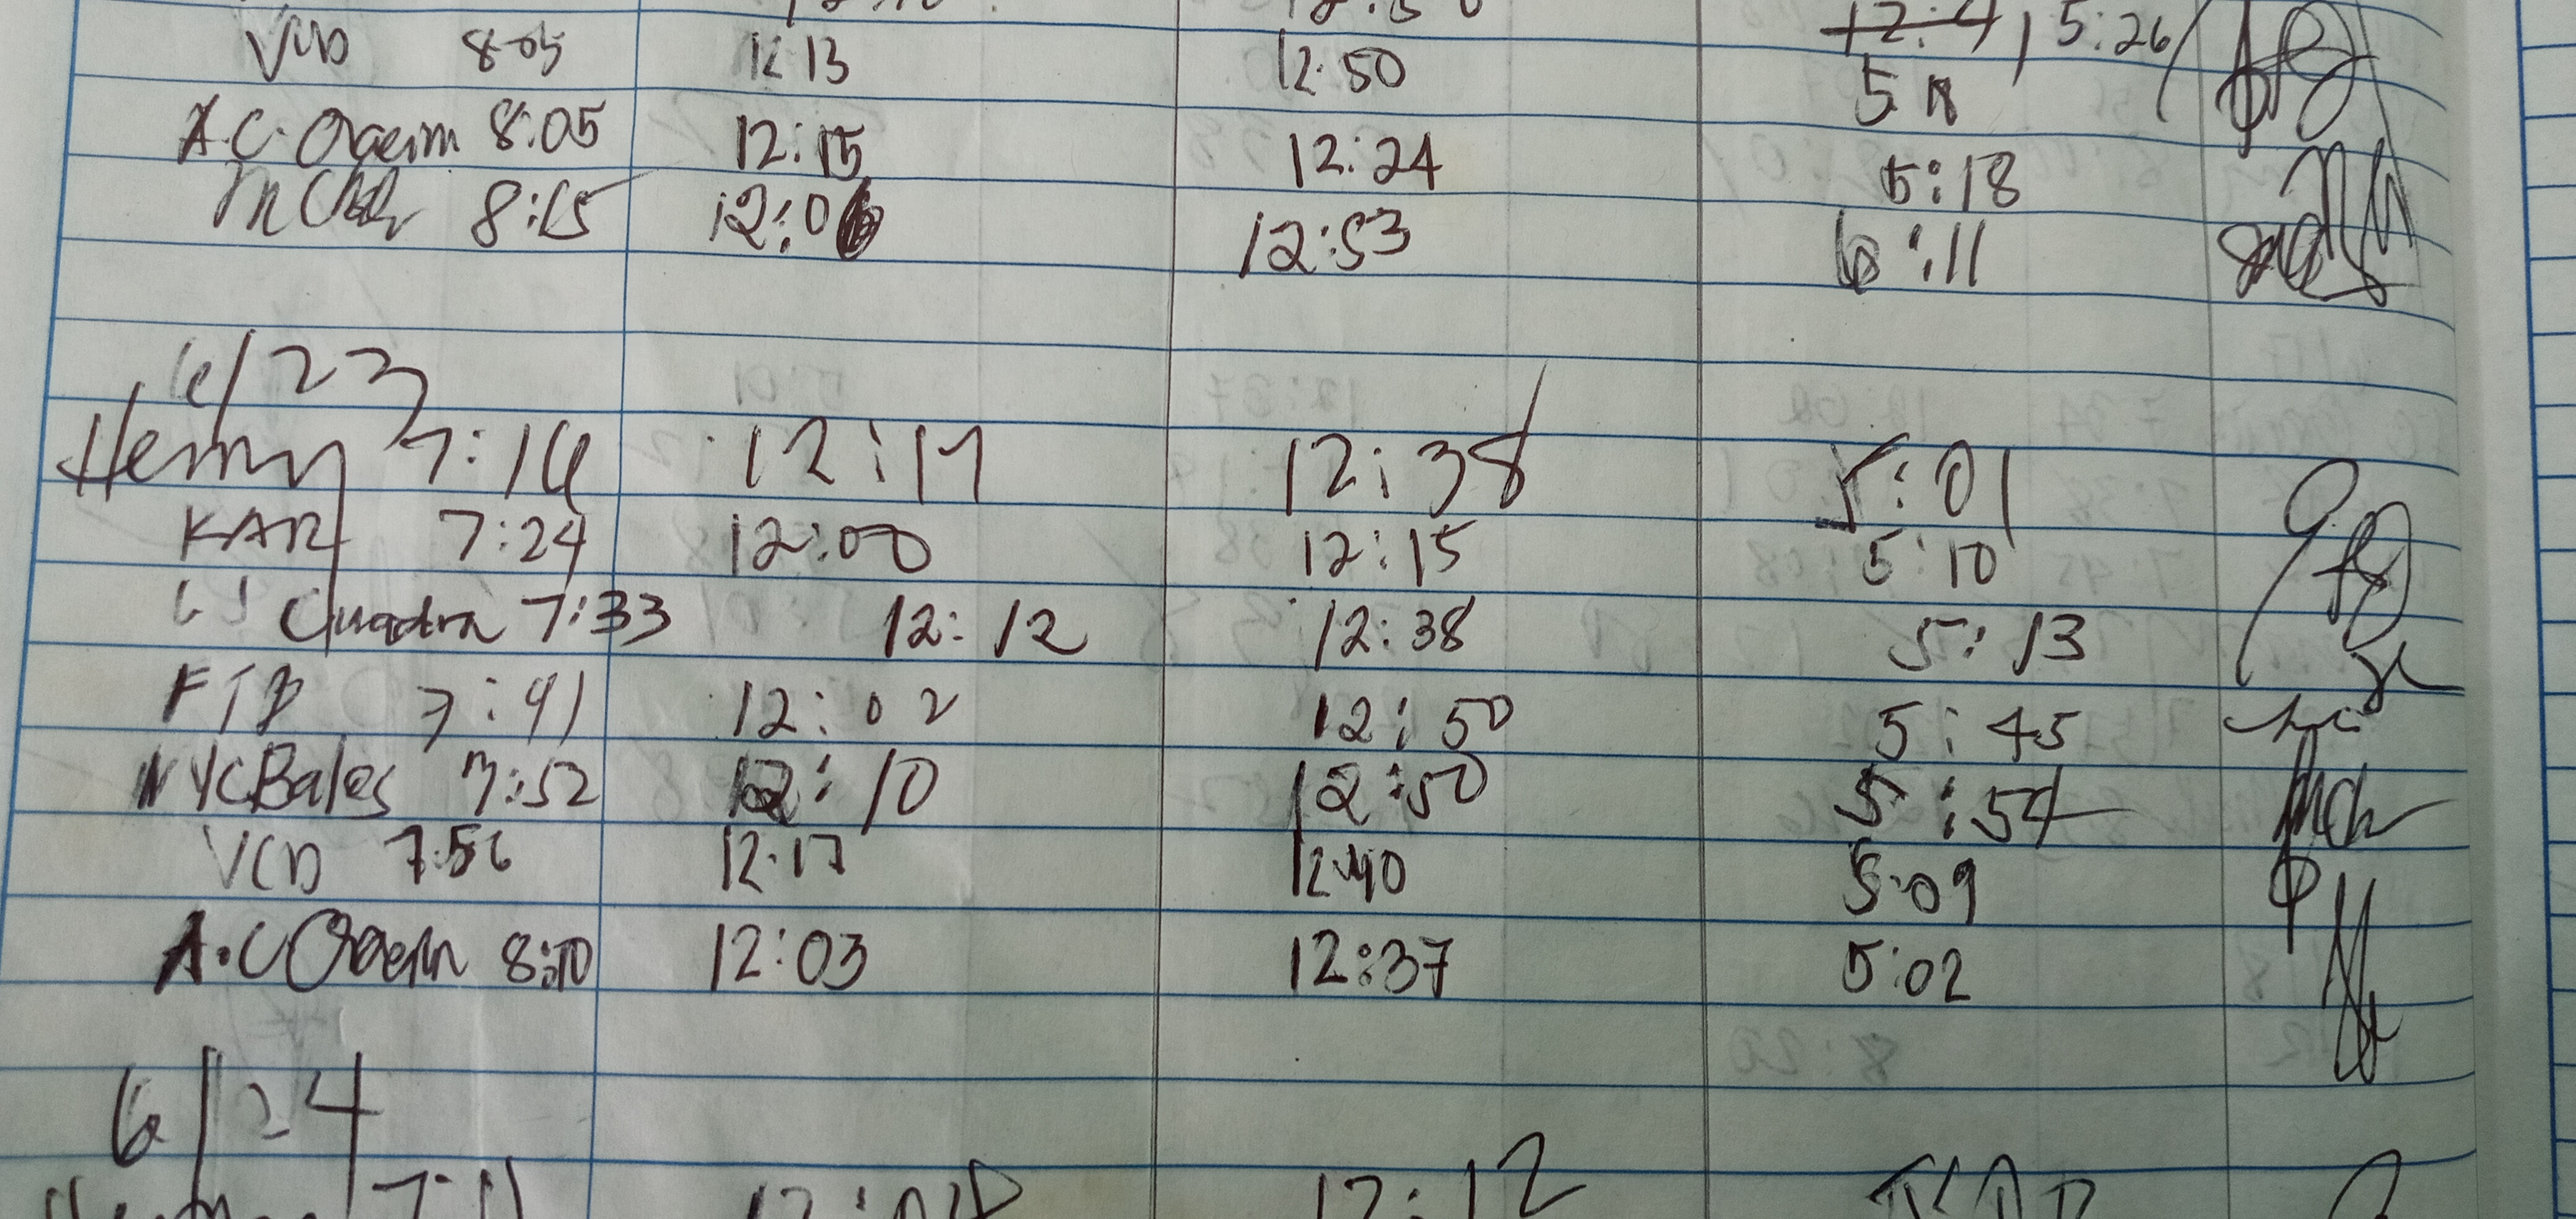 VCD 8:05 12:13 12:50 5:26
A.C. 8:05 12:15 12:24 5:18
8:15 12:06 12:53 6:11
6/23
Henry 7:16 12:17 12:38 5:01
KAR 7:24 12:00 12:15 5:10
Cuadra 7:33 12:12 12:38 5:13
FTB 7:41 12:02 12:50 5:45
NYCBales 7:52 12:10 12:50 5:54
VCD 7:56 12:17 12:40 5:09
A.C 8:10 12:03 12:37 5:02
6/24
7:11 12:12